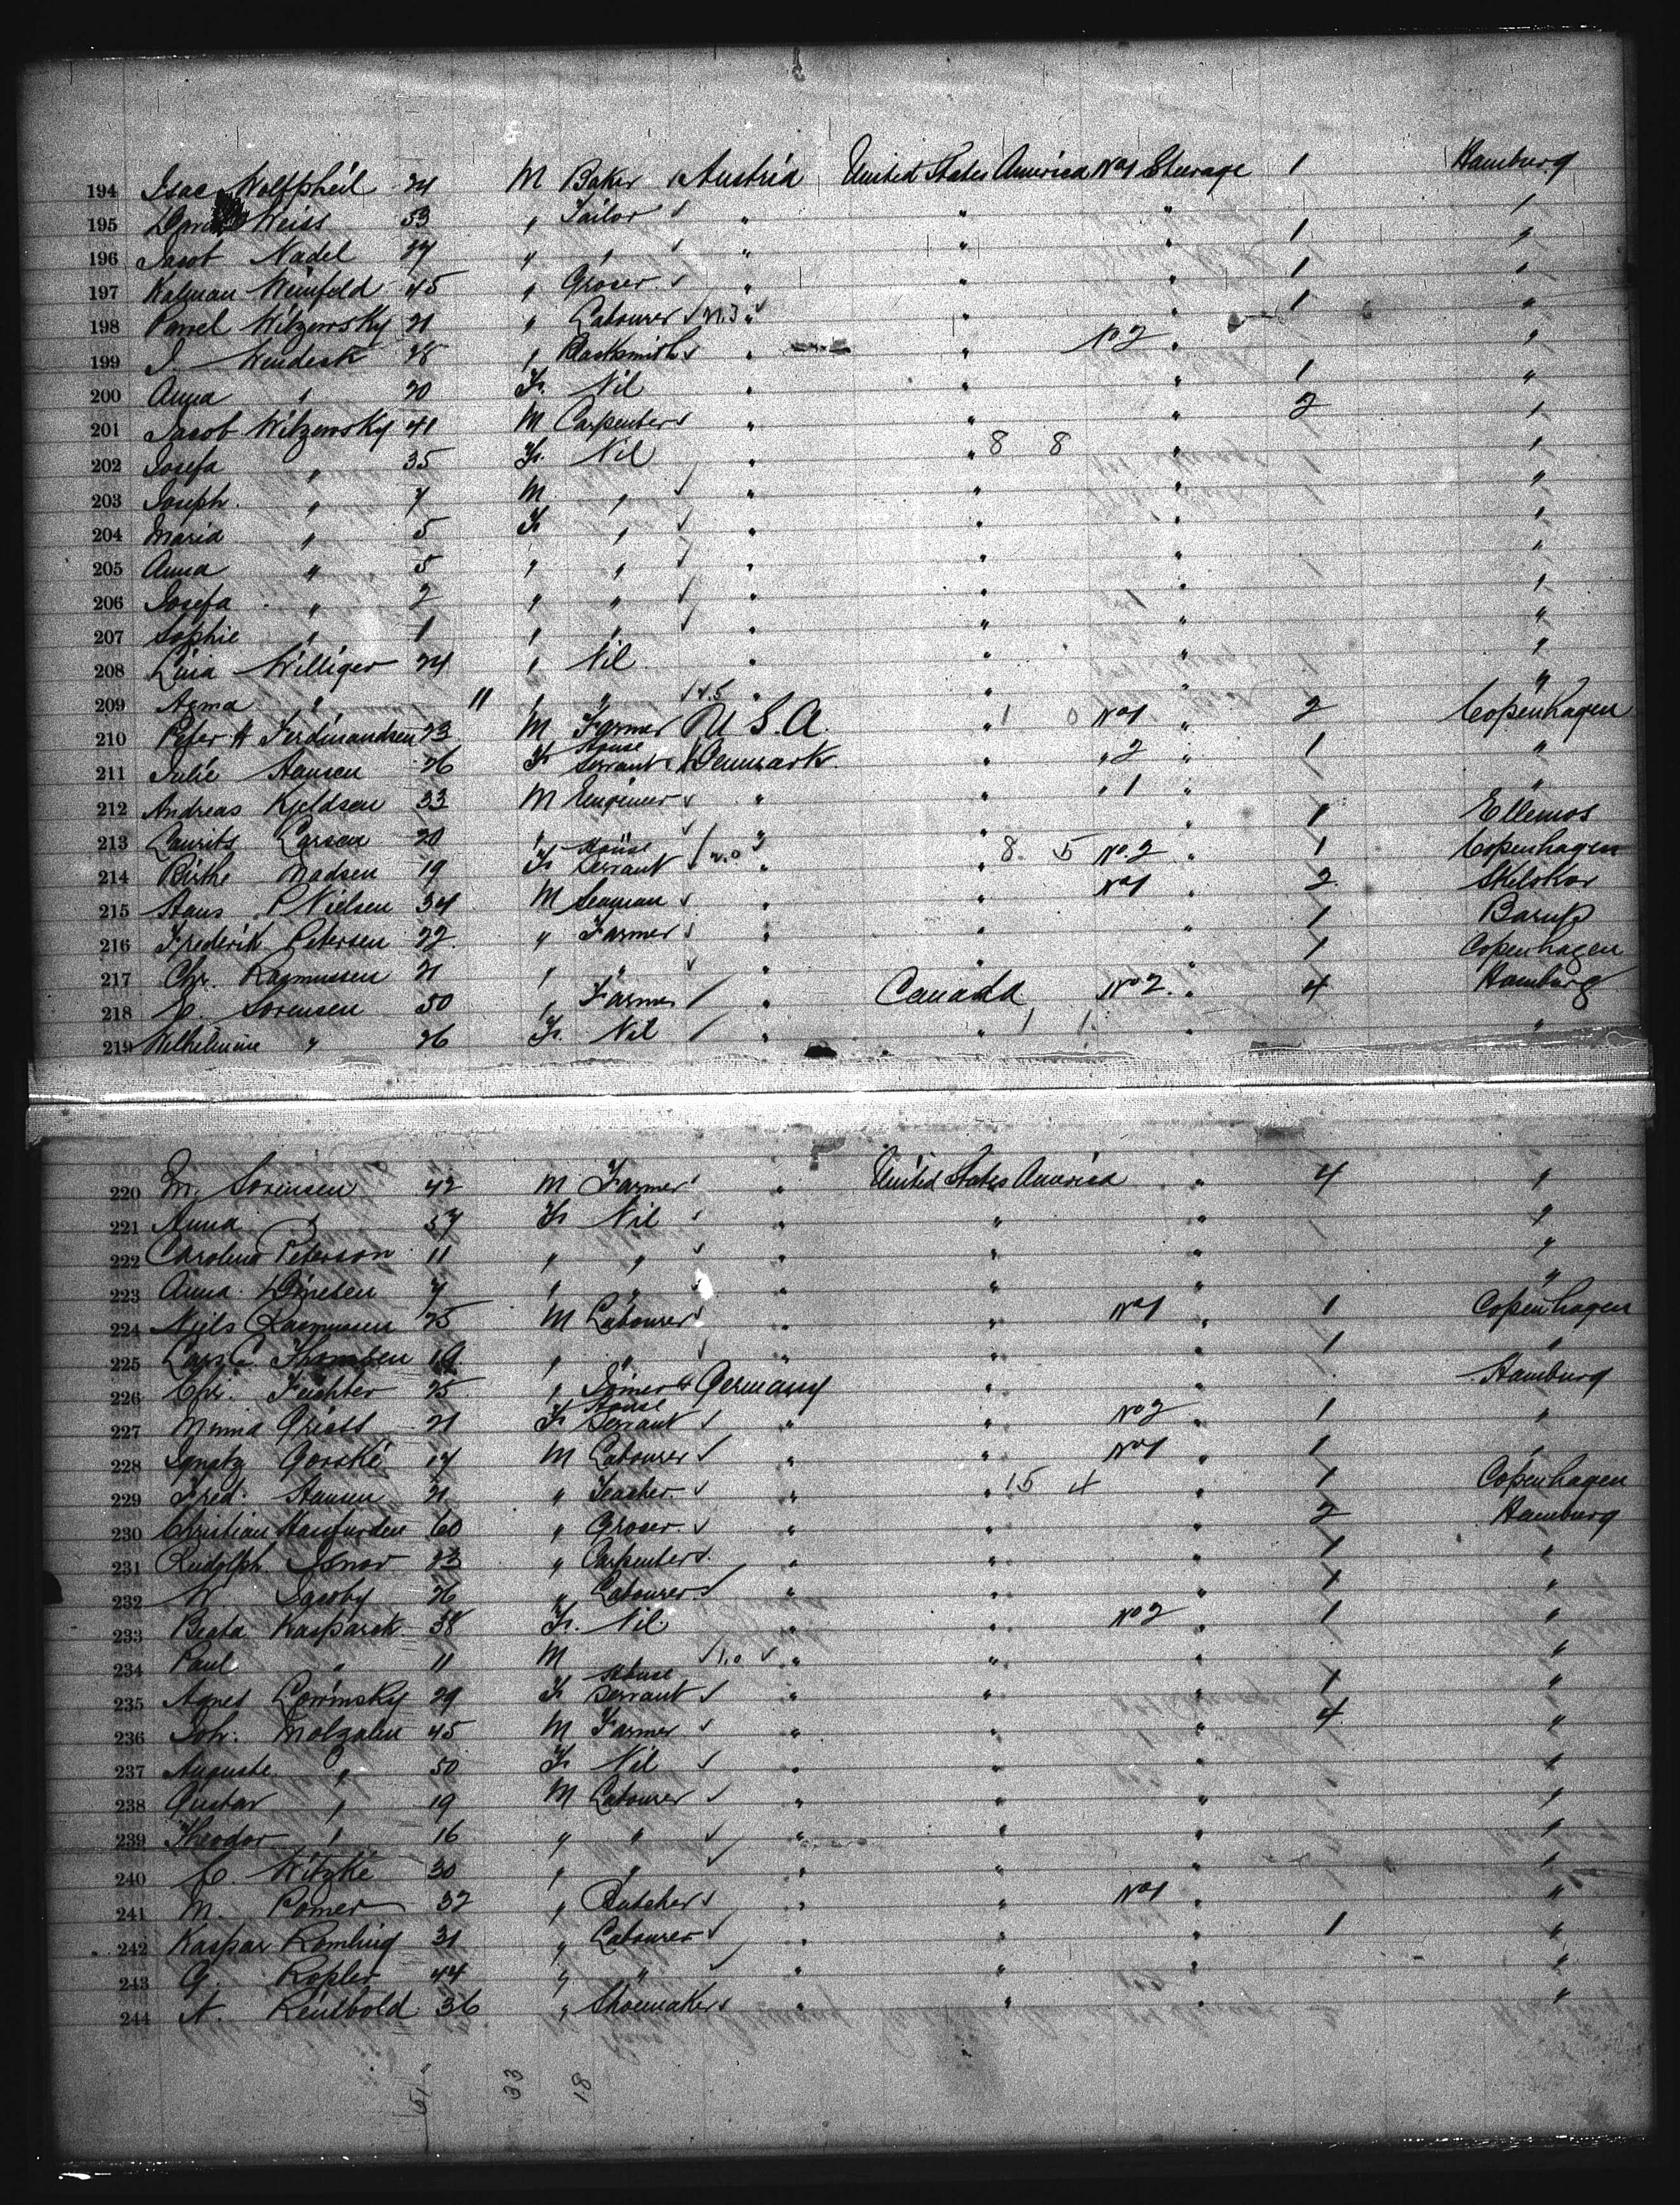 194 Isac Wolfpheil 24 M Baker Austria United States America No 1 Steerage 1 Hamburg
195 Weiss 53 " Tailor " " " 1 "
196 Jacob Nadel 27 " " " " " 1 "
197 Kalman Weinfeld 45 " Groser " " " 1 "
198 Pawel Witzewsky 21 " Labourer " " " 1 "
199 J. 28 " Blacksmith " " No 2 " "
200 Anna " 20 F. Nil " " " 1 "
201 Jacob Witzewsky 41 M Carpenter " " " 2 "
202 Josefa " 35 F. Nil " " 8 8 " "
203 Joseph " 7 M " " " " "
204 Maria " 5 F " " " " "
205 Anna " 5 " " " " " "
206 Josefa " 2 " " " " " "
207 Sophie " 1 " " " " " "
208 Lina Williger 24 " Nil " " " "
209 " 11 " " " " " "
210 Peter A Ferdinandsen 23 M Farmer U.S.A. " 1 0 No 1 " 2 Copenhagen
211 Julie Hansen 26 F House Servant Denmark " " 2 " 1 "
212 Andreas Kjeldsen 33 M Engineer " " " 1 " "
213 Laurits Larsen 20 " " " " " 1 Ellemos
214 Birthe Madsen 19 F House Servant " " 8 5 No 2 " 1 Copenhagen
215 Hans P Nielsen 34 M Seaman " No 1 " 2 Skelskor
216 Frederik Petersen 22 " Farmer " " " 1 Barup
217 Chr. Rasmussen 21 " " " " " 1 Copenhagen
218 Sorensen 50 " Farmer " Canada No 2 " 4 Hamburg
219 Wilhelmine " 26 F. Nil " " 1 1 " "
220 M. Sorensen 42 M Farmer " United States America " 4 "
221 Anna " 37 F Nil " " " "
222 Carolina Peterson 11 " " " " " "
223 Anna Dinesen 7 " " " " " "
224 Niels Rasmussen 25 M Labourer " " No 1 " 1 Copenhagen
225 Lars C. Thomsen 19 " " " " 1 "
226 Chr. Feichter 25 " Joiner Germany " " Hamburg
227 Minna Griess 21 F House Servant " " No 2 " 1 "
228 Ignatz Gorski 17 M Labourer " " No 1 " 1 "
229 Fred. Hansen 21 " Teacher " " 15 4 " 1 Copenhagen
230 Christian 60 " Groser " " " 2 Hamburg
231 Rudolph 23 " Carpenter " " " 1 "
232 Jacoby 26 " Labourer " " " 1 "
233 Beata Kasparek 38 F. Nil " " No 2 " 1 "
234 Paul " 11 M " " " "
235 Agnes Lowinsky 29 F House Servant " " " 1 "
236 Joh. Molzahn 45 M Farmer " " " 4 "
237 Auguste " 50 F Nil " " " "
238 Gustav " 19 M Labourer " " " "
239 Theodor " 16 " " " " " "
240 Witzke 30 " " " " " "
241 M. Pomer 32 " Butcher " " No 1 " "
242 Kaspar Romling 31 " Labourer " " " 1 "
243 G. Kopler 44 " " " " " "
244 Reinbold 36 " Shoemaker " " " "
51 33 18